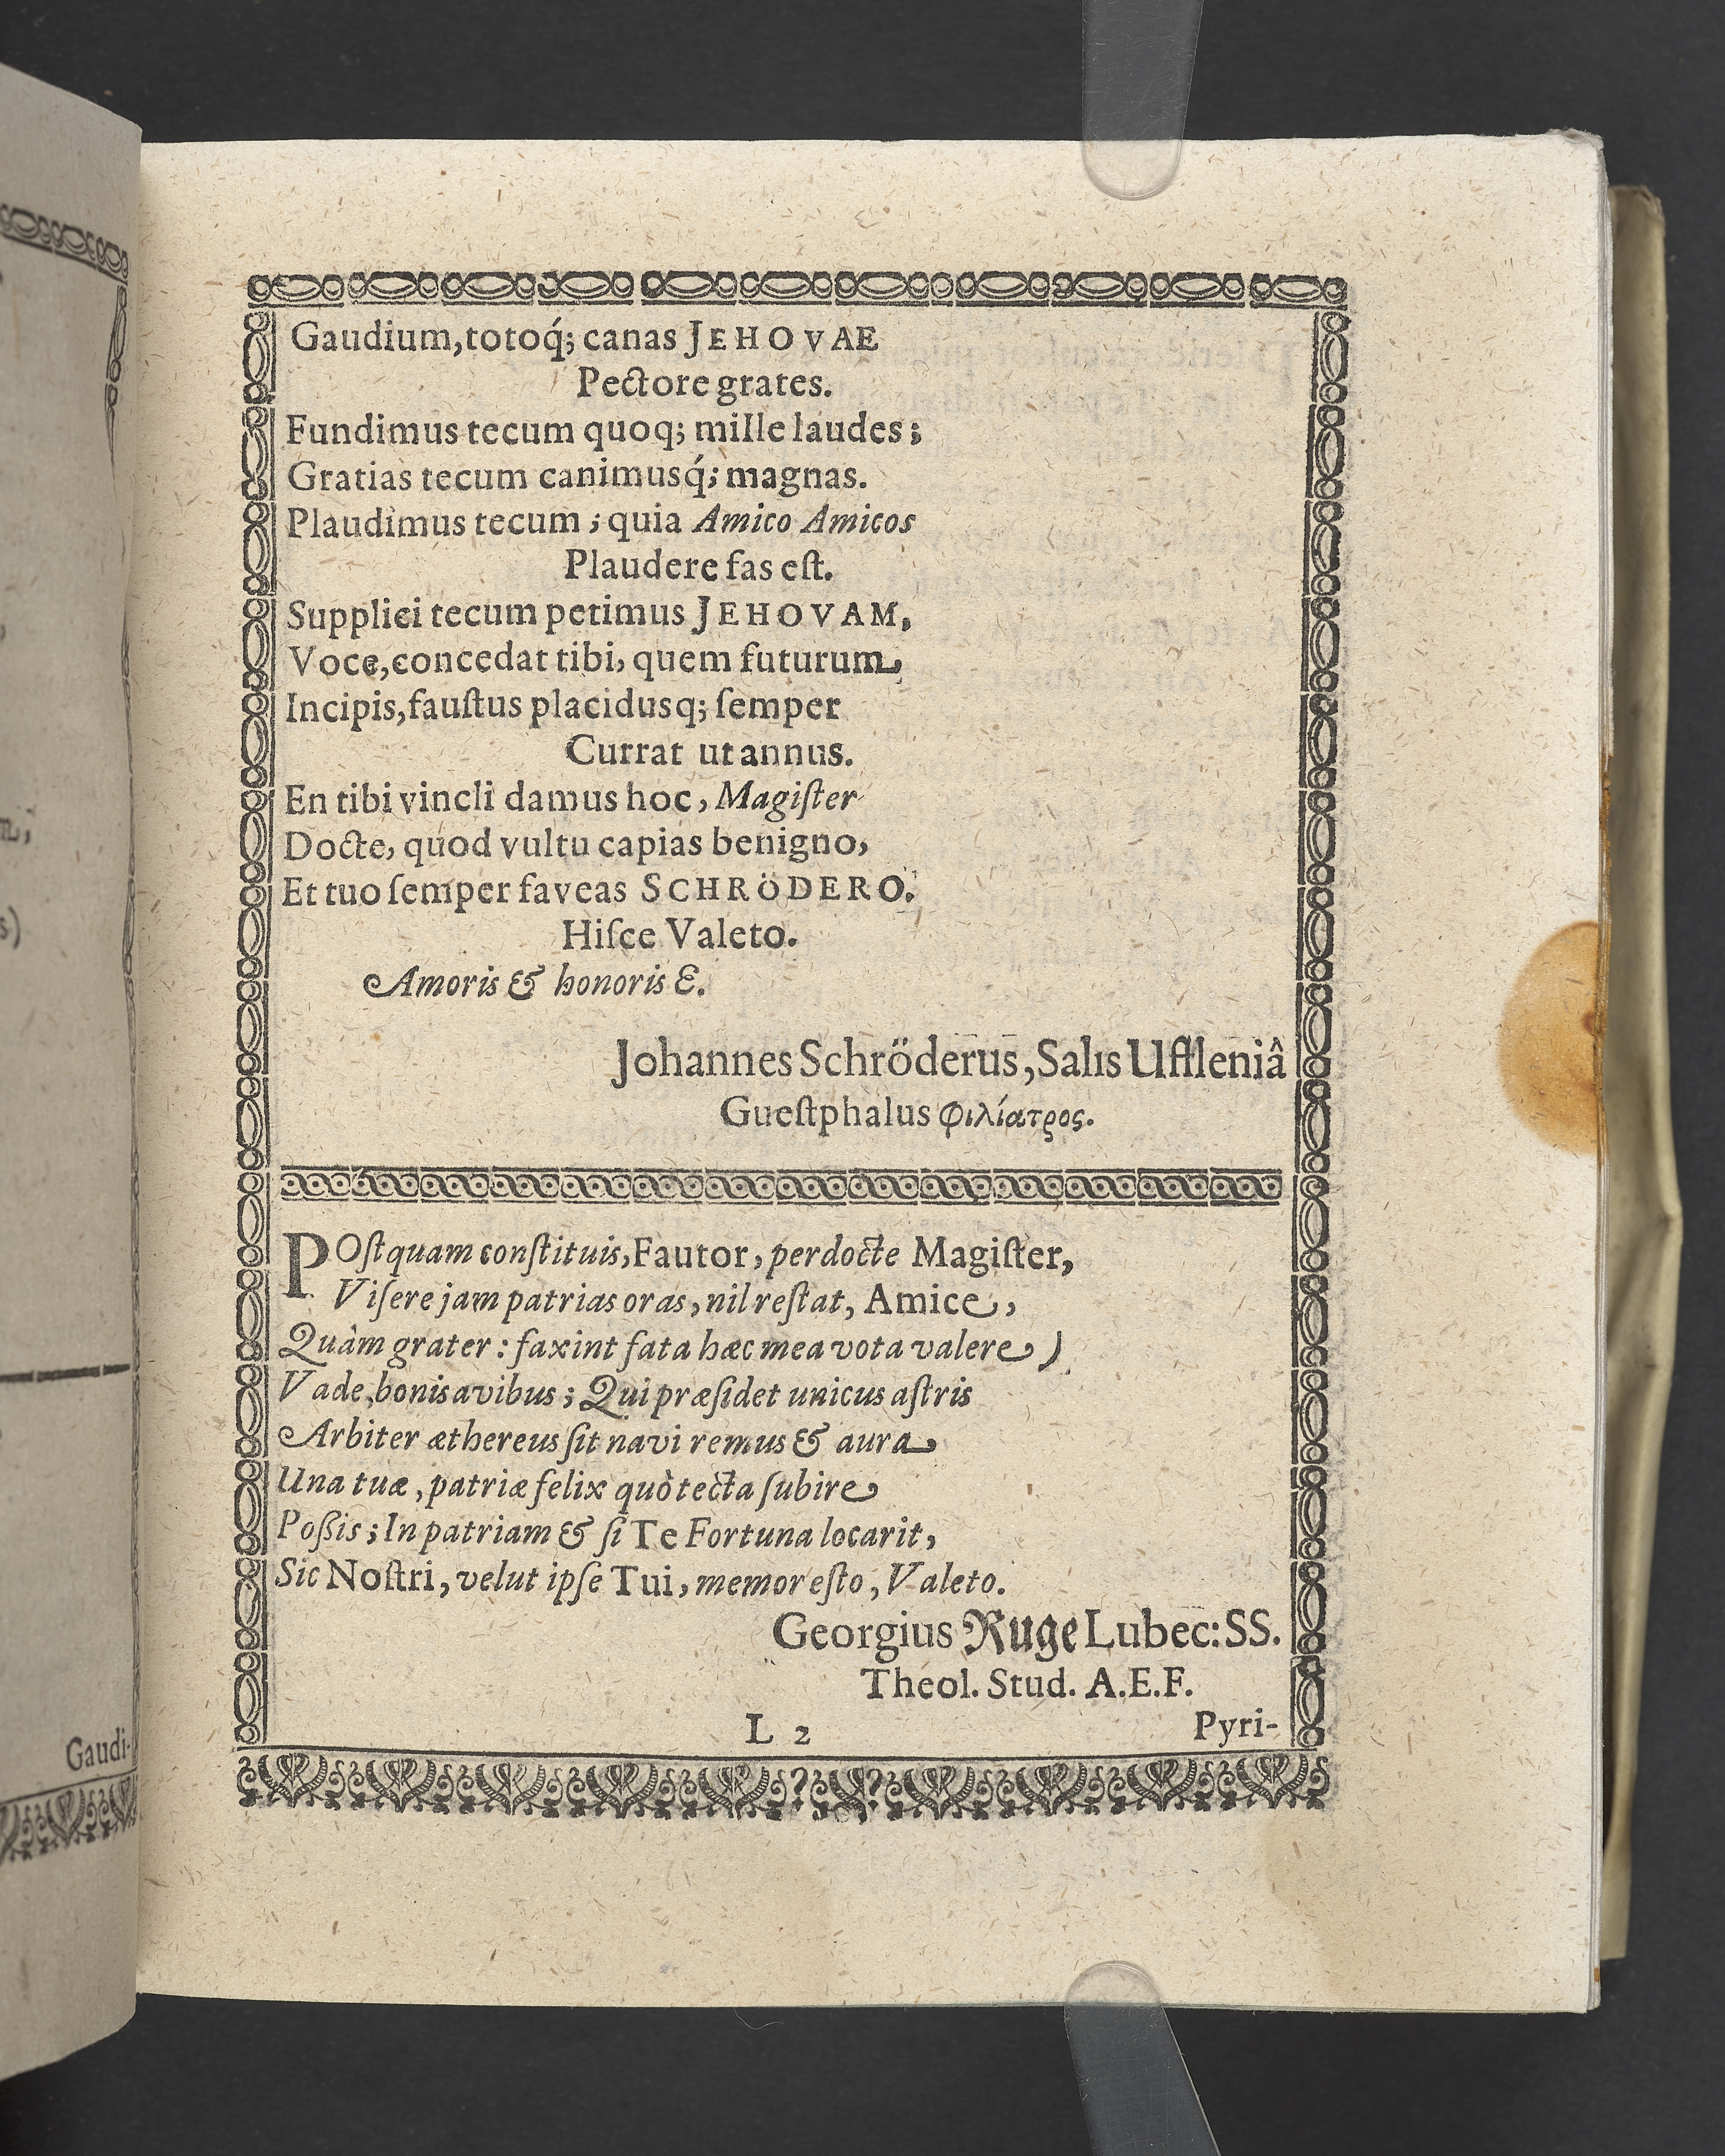 Gaudium, totoq́; canas JEHOVAE
Pectore grates.
Fundimus tecum quoq; mille laudes;
Gratias tecum canimusq́; magnas.
Plaudimus tecum; quia Amico Amicos
Plaudere fas eſt.
Supplici tecum petimus JEHOVAM,
Voce, concedat tibi, quem futurum,
Incipis, fauſtus placidusq; ſemper
Currat ut annus.
En tibi vincli damus hoc, Magiſter
Docte, quod vultu capias benigno,
Et tuo ſemper faveas SCHRÖDERO.
Hiſce Valeto.
Amoris & honoris E.
Johannes Schröderus, Salis Uffleniâ
Gueſtphalus φιλίατρος.
POſtquam conſtituis, Fautor, perdocte Magiſter,
Viſere jam patrias oras, nil reſtat, Amice,
Quàm grater: faxint fata hæc mea vota valere)
Vade, bonis avibus; Qui præſidet unicus aſtris
Arbiter æthereus ſit navi remus & aura
Una tuæ, patriæ felix quò tecta ſubire
Poßis; In patriam & ſi Te Fortuna locarit,
Sic Noſtri, velut ipſe Tui, memor eſto, Valeto.
Georgius Ruge Lubec: SS.
Theol. Stud. A.E.F.
L 2
Pyri-
Gaudi-